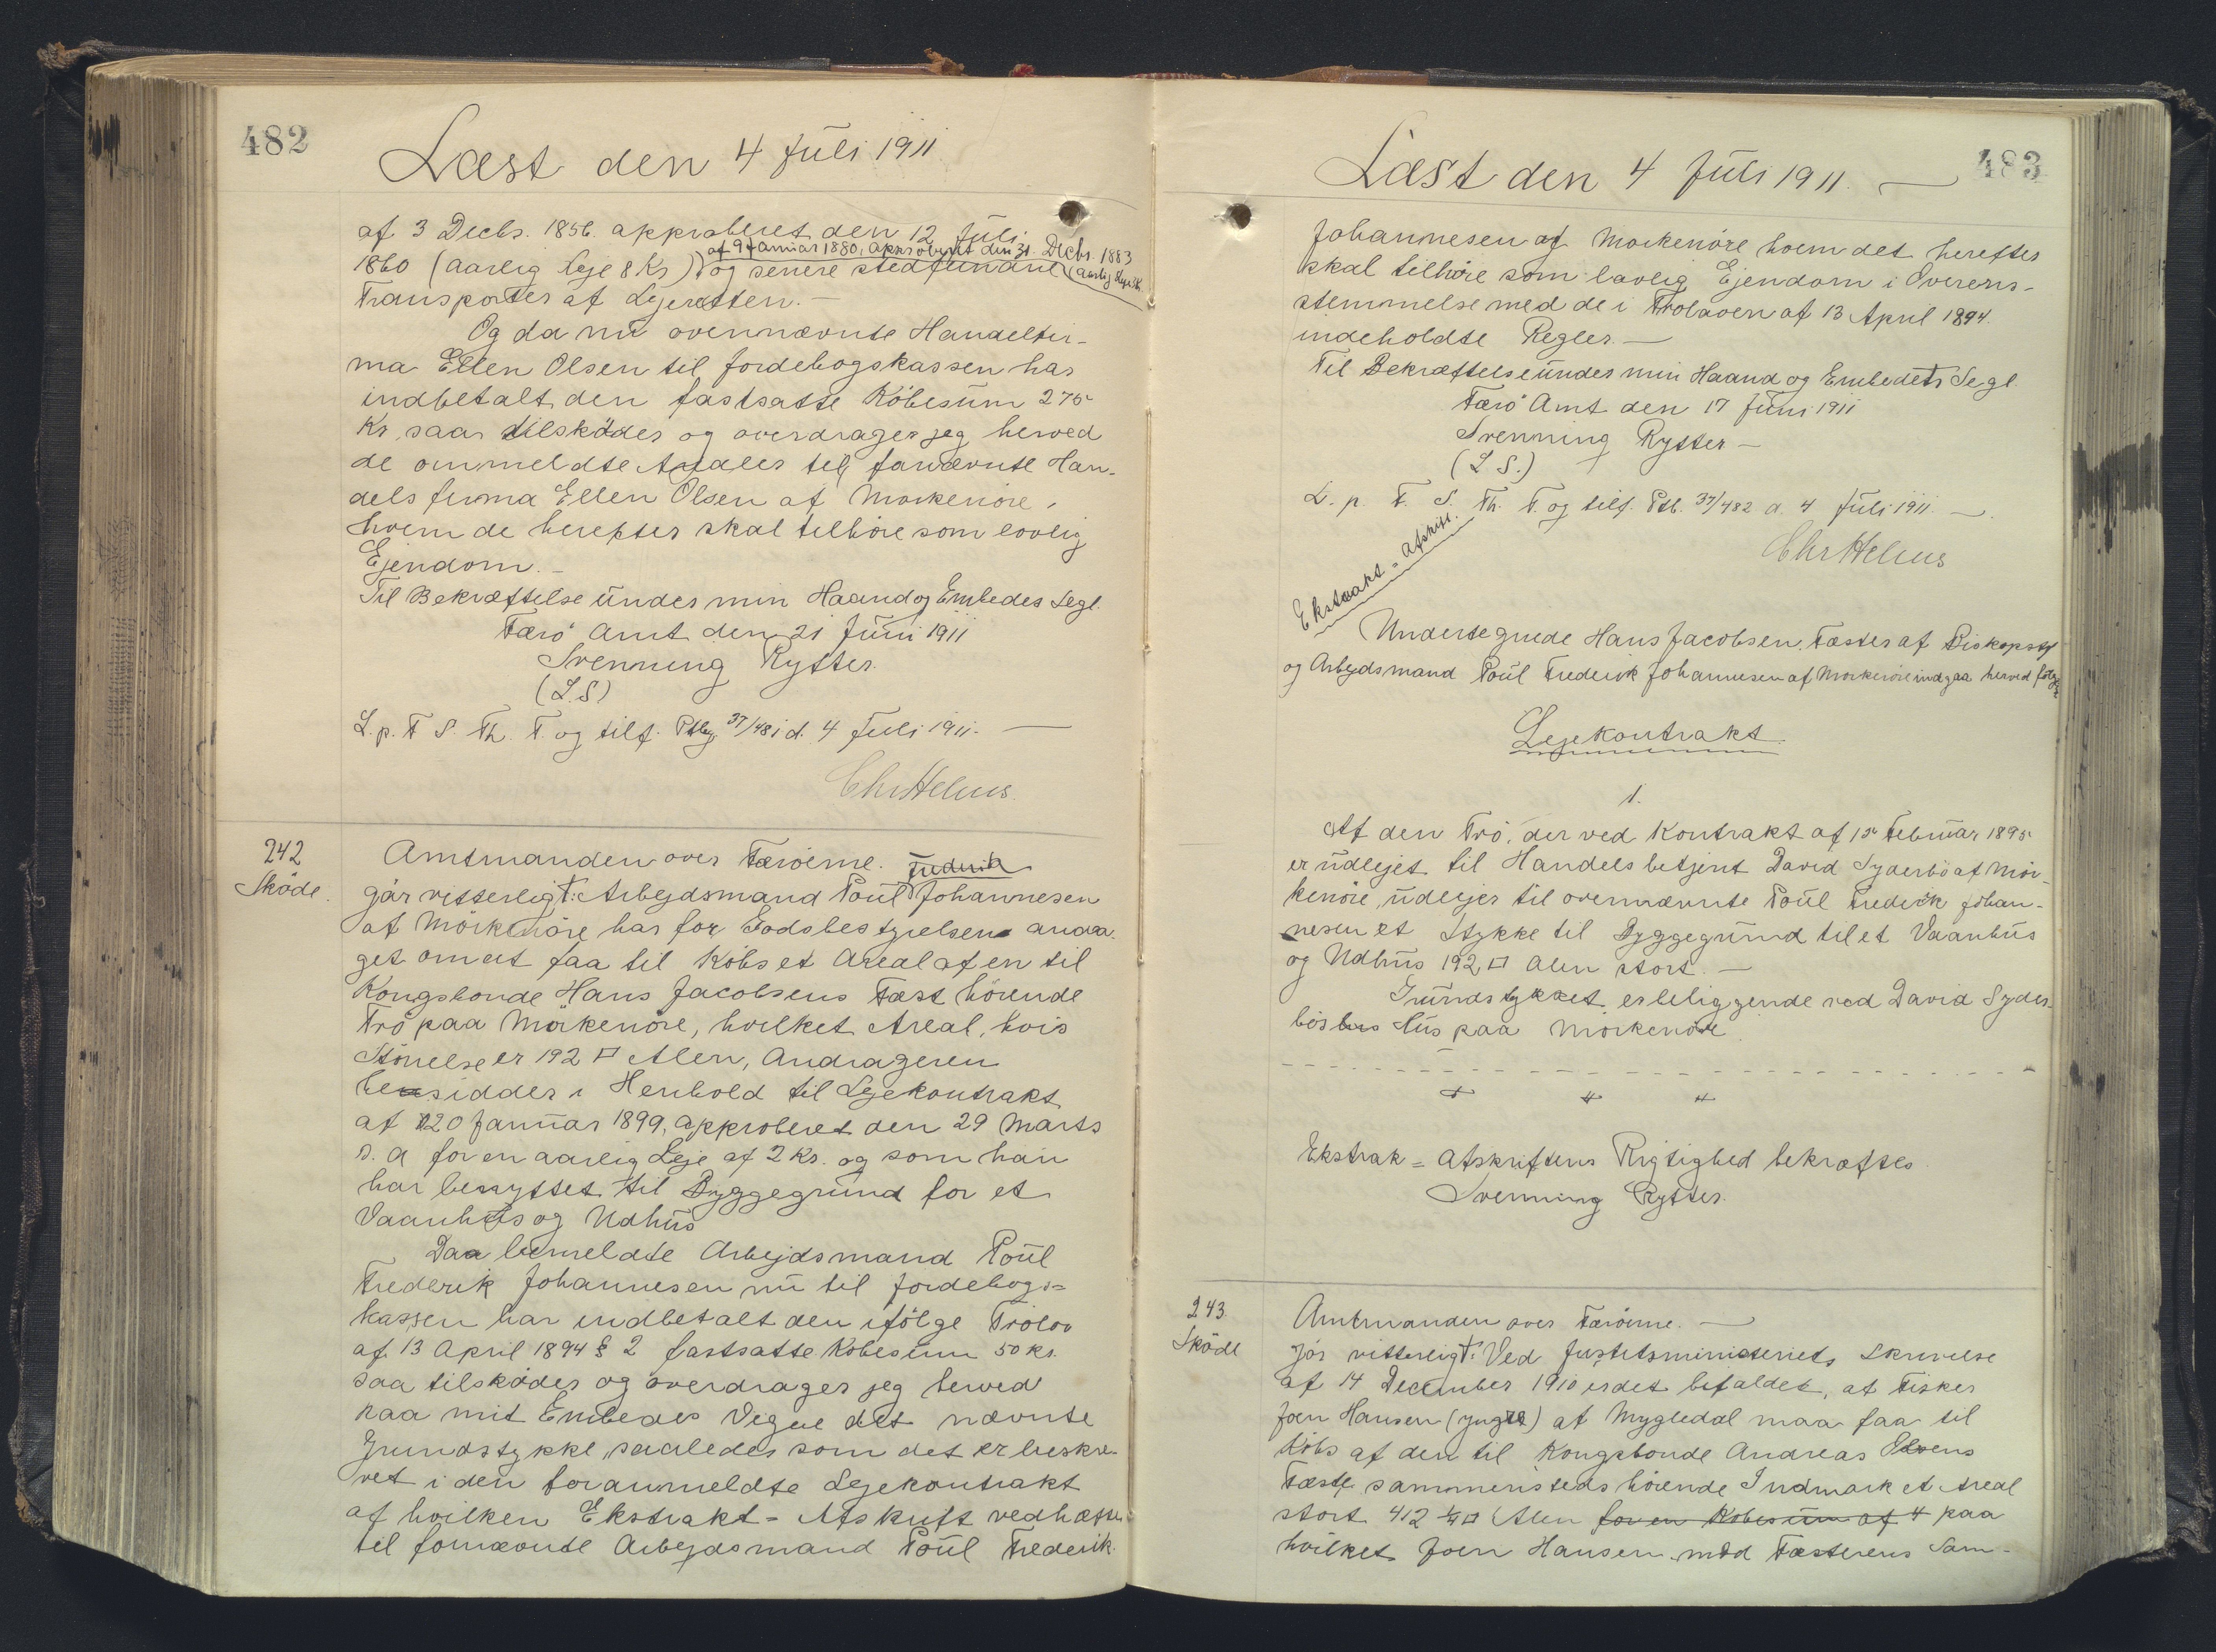 482
Læst den 4 Juli 1911
af 3 Decbr. 1856. approberet den 12 Juli
af 9 Januar 1880, approberet den 31. Decbr. 1883
1860 (aarlig Leje 8 Kr) og senere stedfundne (aarlig Leje
Transporter af Lejeretten. —
Og da nu ovennævnte Handelfir-
ma Ellen Olsen til Jordebogskassen har
indbetalt den fastsatte Köbesum 275
Kr, saa tilskøder og overdrager jeg herved
de ommeldte Arealer til fornævnte Han-
dels firma Ellen Olsen af Mørkenöre,
hvem de herefter skal tilhöre som lovlig
Ejendom. —
Til Bekræftelse under min Haand og Embedes Segl.
Færø Amt den 21 Juni 1911
Svenning Rytter.
(L.S)
L. p. F S. Th. T. og tilf. Ptbg 37/481 d. 4 Juli 1911. —
Chr Helms.
242
Sköde.
Amtmanden over Færöerne.
Frederik
gör vitterligt: Arbejdsmand Poul Johannesen
af Mörkenöre har for Godsbestyrelsen andra-
get om at faa til Köbs et Areal af en til
Kongsbonde Hans Jacobsens Fæst hörende
Trö paa Mörkenöre, hvilket Areal, hvis
Störrelse er 192 □ Alen, Andrageren
besidder i Henhold til Lejekontrakt
af 20 Januar 1899, approberet den 29 Marts
s. A for en aarlig Leje af 2 Kr. og som han
har benyttet til Byggegrund for et
Vaanhus og Udhus
Daa bemeldte Arbejdsmand Poul
Frederik Johannesen nu til Jordebogs=
kassen har indbetalt den ifölge Trölov
af 13 April 1894 § 2 fastsatte Köbesum 50 Kr.
saa tilsköder og overdrager jeg herved
paa mit Embedes Vegne det nævnte
Grundstykke, saaledes som det er beskre-
vet i den foranmeldte Lejekontrakt
af hvilken Ekstrakt = Afskrift vedhæftes
til fornævnte Arbejdsmand Poul Frederik
483
Læst den 4 Juli 1911. —
Johannesen af Mörkenöre hvem det herefter
skal tilhöre som lovlig Ejendom i Overens-
stemmelse med de i Tröloven af 13 April 1894.
indeholdte Regler. —
Til Bekræftelse under min Haand og Embedets Segl.
Færö Amt den 17 Juni 1911
Svenning Rytter —
(L S.)
L. p. F. S. Th. T. og tilf. Ptb. 37/482 d. 4 Juli 1911. —
Chr Helms
Ekstrakt = Afskrift.
Undertegnede Hans Jacobsen, Fæster af Biskopstø
og Arbejdsmand Poul Frederik Johannesen af Mörkenöre indgaa herved følgende
Lejekontrakt.
1.
Af den Trö, der ved Kontrakt af 15 Februar 1895
er udlejet til Handelsbetjent David Syderbö af Mör-
kenöre, udlejes til ovennævnte Poul Frederik Johan-
nesen et Stykke til Byggegrund til et Vaanhus
og Udhus 192 □ Alen stort. —
Grundstykket er beliggende ved David Syder-
bös Hus paa Mörkenöre.
Ekstrak = Afskriftens Rigtighed bekræftes
Svenning Rytter.
243.
Sköde
Amtmanden over Færöerne. —
gör vitterligt: Ved Justitsministeriets Skrivelse
af 14 December 1910 er det befaldet, at Fisker
Joen Hansen (yngre) af Mygledal maa faa til
Köbs af den til Kongsbonde Andreas Olsens
Fæste sammensteds hörende Indmark et Areal
stort 412 ½ □ Alen for en Köbesum af 4 paa
hvilket Joen Hansen med Fæsterens Sam-